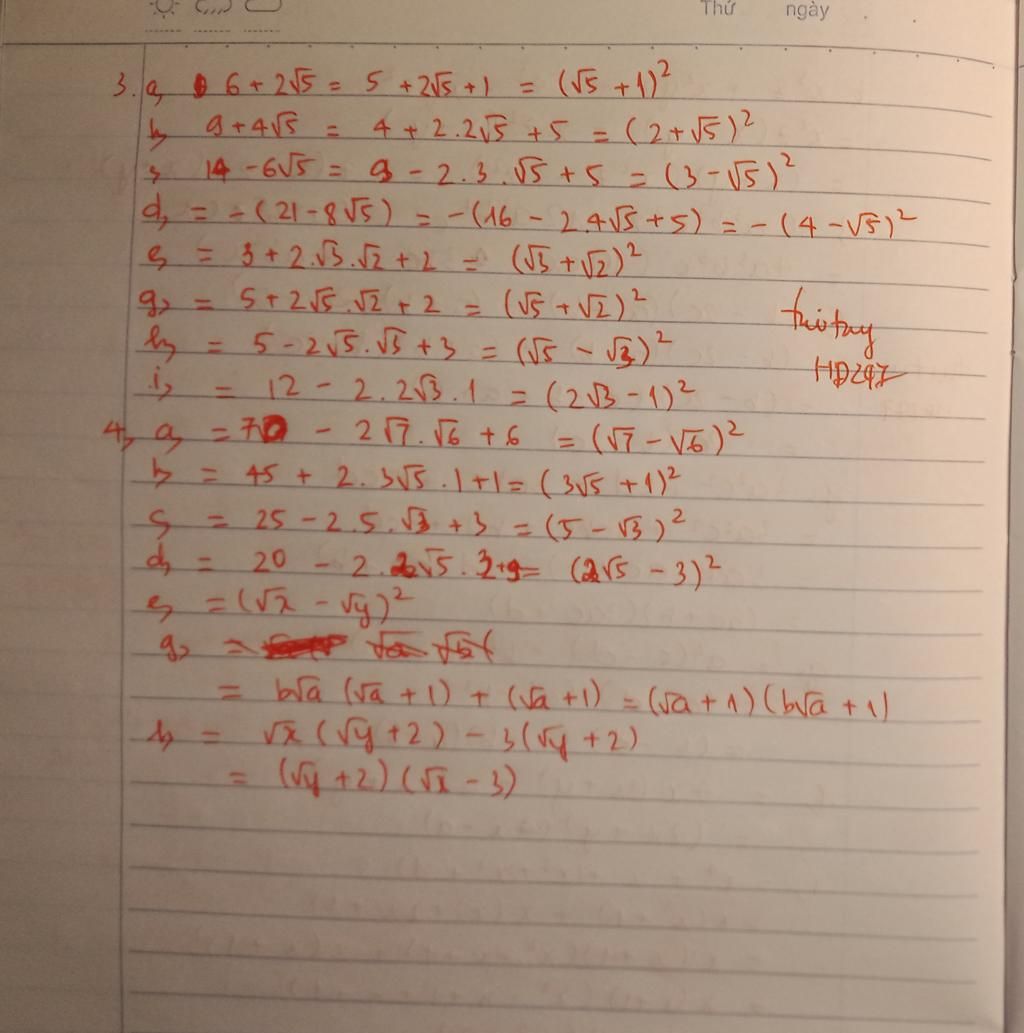 Thứ ngày
3. a, 6 + 2√5 = 5 + 2√5 + 1 = (√5 + 1)²
b, 9 + 4√5 = 4 + 2.2√5 + 5 = (2 + √5)²
c, 14 - 6√5 = 9 - 2.3.√5 + 5 = (3 - √5)²
d, = -(21 - 8√5) = -(16 - 2.4√5 + 5) = -(4 - √5)²
e, = 3 + 2.√3.√2 + 2 = (√3 + √2)²
g, = 5 + 2√5.√2 + 2 = (√5 + √2)²
h, = 5 - 2√5.√3 + 3 = (√5 - √3)²
i, = 12 - 2.2√3.1 = (2√3 - 1)²
HD247
4, a, = 7 - 2√7.√6 + 6 = (√7 - √6)²
b, = 45 + 2.3√5.1 + 1 = (3√5 + 1)²
c, = 25 - 2.5.√3 + 3 = (5 - √3)²
d, = 20 - 2.2√5.3 + 9 = (2√5 - 3)²
e, = (√x - √y)²
g, =
= b√a (√a + 1) + (√a + 1) = (√a + 1)(b√a + 1)
h, = √x (√y + 2) - 3(√y + 2)
= (√y + 2)(√x - 3)